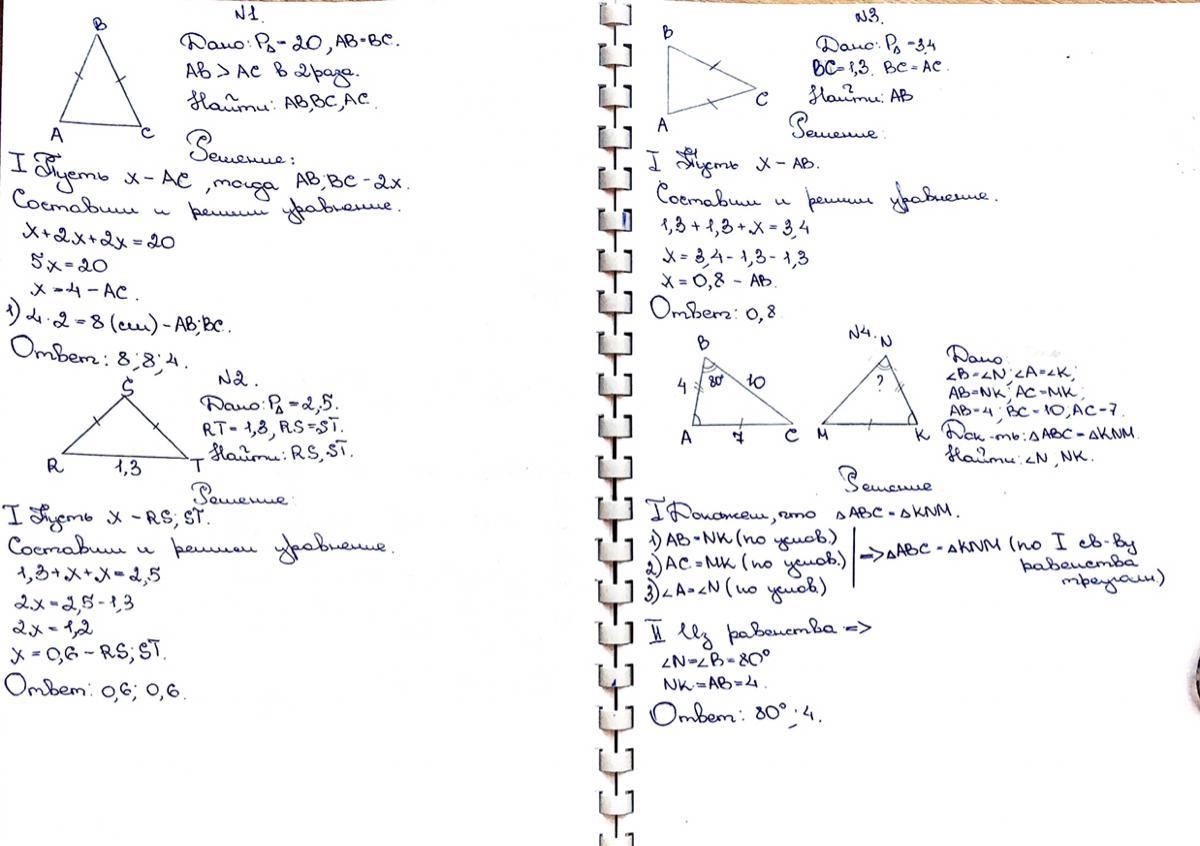 N1.
B
A
C
Дано: P∆ = 20, AB=BC.
AB > AC в 2 раза.
Найти: AB,BC,AC.
Решение:
I Пусть x – AC, тогда AB;BC – 2x.
Составим и решим уравнение.
x+2x+2x=20
5x=20
x=4 – AC.
1) 4·2=8 (см) – AB;BC.
Ответ: 8;8;4.
N2.
S
R
T
1,3
Дано: P∆ = 2,5.
RT=1,3, RS=ST.
Найти: RS, ST.
Решение:
I Пусть x – RS; ST.
Составим и решим уравнение.
1,3+x+x=2,5
2x=2,5-1,3
2x=1,2
x=0,6 – RS; ST.
Ответ: 0,6; 0,6.
N3.
B
C
A
Дано: P∆ = 3,4
BC=1,3. BC=AC.
Найти: AB
Решение:
I Пусть x – AB.
Составим и решим уравнение.
1,3+1,3+x=3,4
x=3,4-1,3-1,3
x=0,8 – AB.
Ответ: 0,8
N4.
B
4
80°
10
A
7
C
N
?
M
K
Дано:
∠B=∠N; ∠A=∠K;
AB=NK; AC=MK;
AB=4; BC=10, AC=7.
Док-ть: ∆ABC=∆KNM.
Найти: ∠N, NK.
Решение
I Докажем, что ∆ABC=∆KNM.
1) AB=NK (по услов.)
2) AC=MK (по услов.)
3) ∠A=∠N (по услов.)
=> ∆ABC=∆KNM (по I св-ву
равенства
треугольн.)
II Из равенства =>
∠N=∠B=80°
NK=AB=4.
Ответ: 80°; 4.